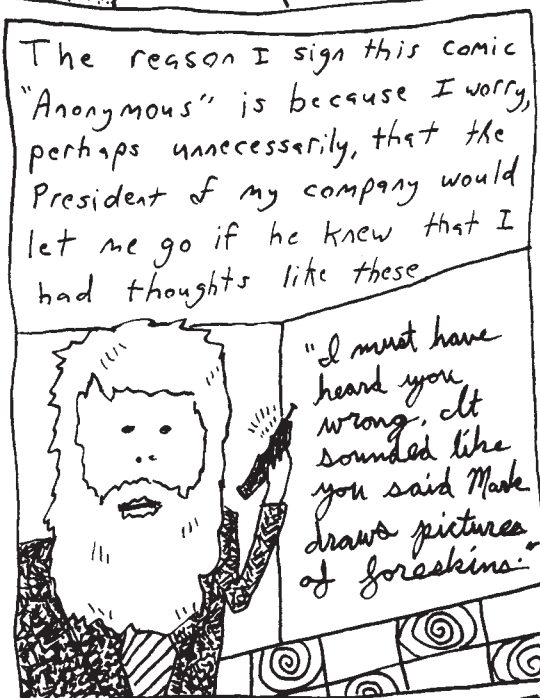 The reason I sign this comic
"Anonymous" is because I worry,
perhaps unnecessarily, that the
President of my company would
let me go if he knew that I
had thoughts like these
"I must have
heard you
wrong. It
sounded like
you said Mark
draws pictures
of foreskins."